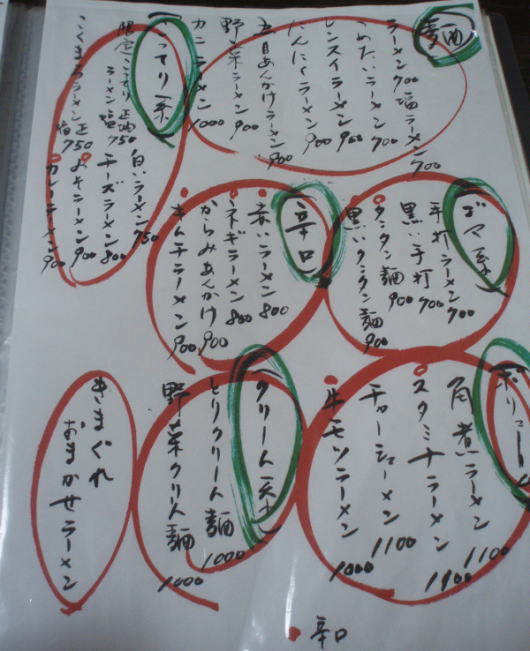 麺
ラーメン700 塩ラーメン700
つめたいラーメン700
レンスイラーメン900
にんにくラーメン900
五目あんかけラーメン900
野菜ラーメン900
カニラーメン1000
こってり系
限定こってり正油ラーメン750
塩750
白いラーメン750
チーズラーメン800
みそラーメン900
カレーラーメン900
ゴマ系
手打ラーメン700
黒い手打900
タンタン麺900
黒いタンタン麺900
辛口
赤いラーメン800
ネギラーメン800
からみあんかけ900
キムチラーメン900
ボリューム
角煮ラーメン1100
スタミナラーメン1100
チャーシューメン1100
牛モツラーメン1000
クリーム系
とりクリーム麺1000
野菜クリーム麺1000
きまぐれ
おまかせラーメン
辛口